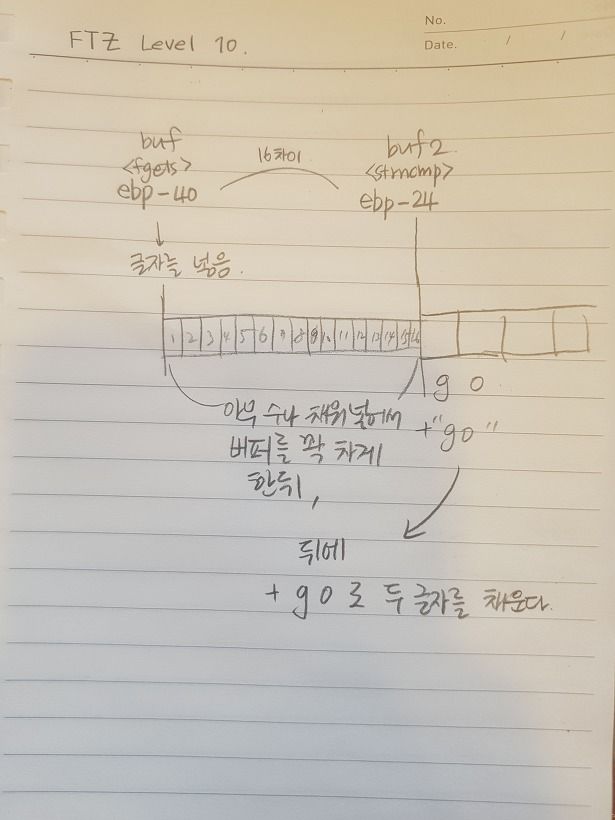 No.
FTZ Level 10.
Date. / /
buf
16차이
buf2
<fgets>
<strncmp>
ebp-40
ebp-24
글자를 넣음.
1 2 3 4 5 6 7 8 9 10 11 12 13 14 15 16
g o
아무 수나 채워 넣어서
+"go"
버퍼를 꽉 차게
한 뒤,
뒤에
+ go로 두 글자를 채운다.